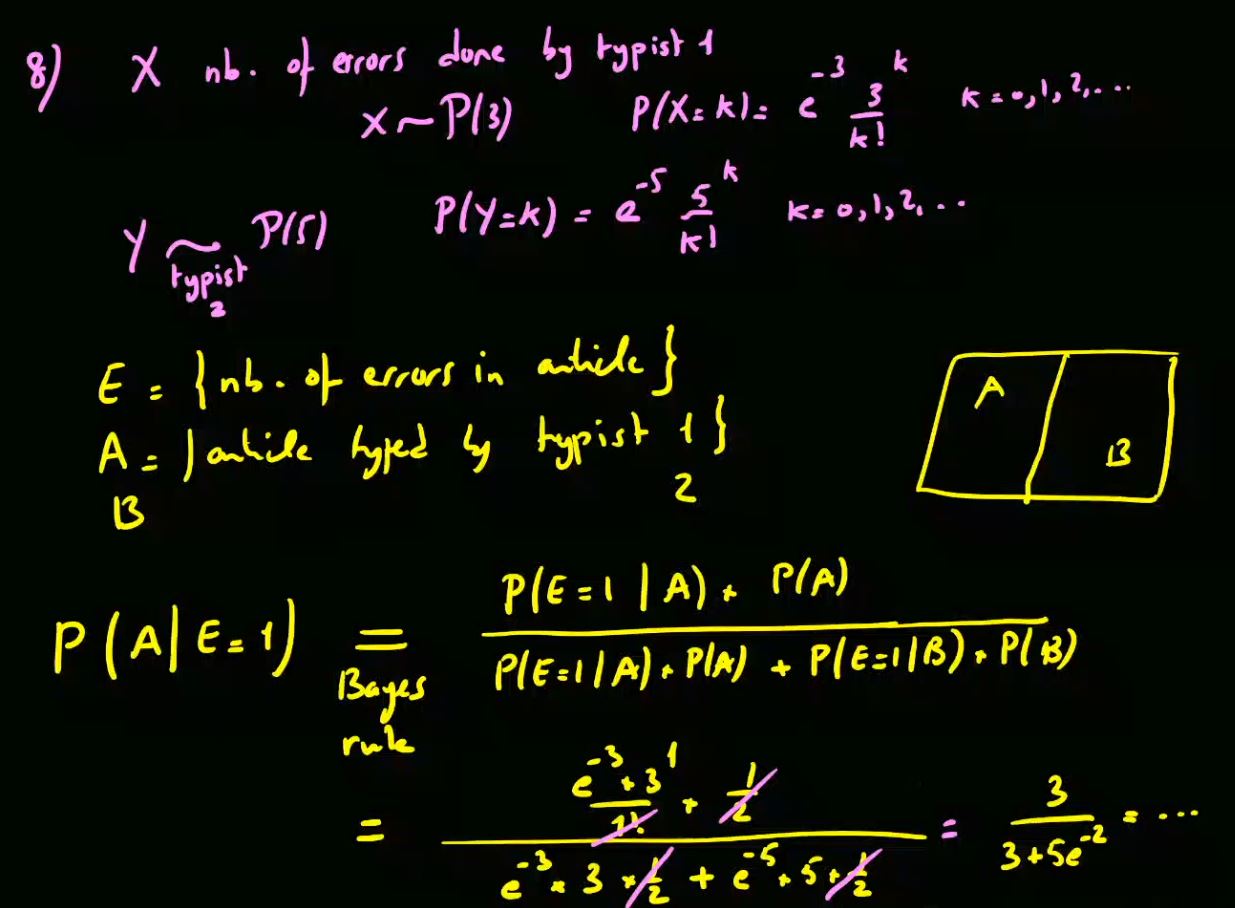 8) X nb. of errors done by typist 1
X ~ P(3) P(X=k) = e^-3 3^k/k! k=0,1,2,...
Y ~ P(5) P(Y=k) = e^-5 5^k/k! k=0,1,2,...
typist
2
E = {nb. of errors in article}
A = {article typed by typist 1}
B 2
A
B
P(A|E=1) = P(E=1|A) * P(A) / P(E=1|A) * P(A) + P(E=1|B) * P(B)
Bayes
rule
= e^-3 * 3^1 / 1! * 1/2 / e^-3 * 3 * 1/2 + e^-5 * 5 * 1/2 = 3 / 3+5e^-2 = ...